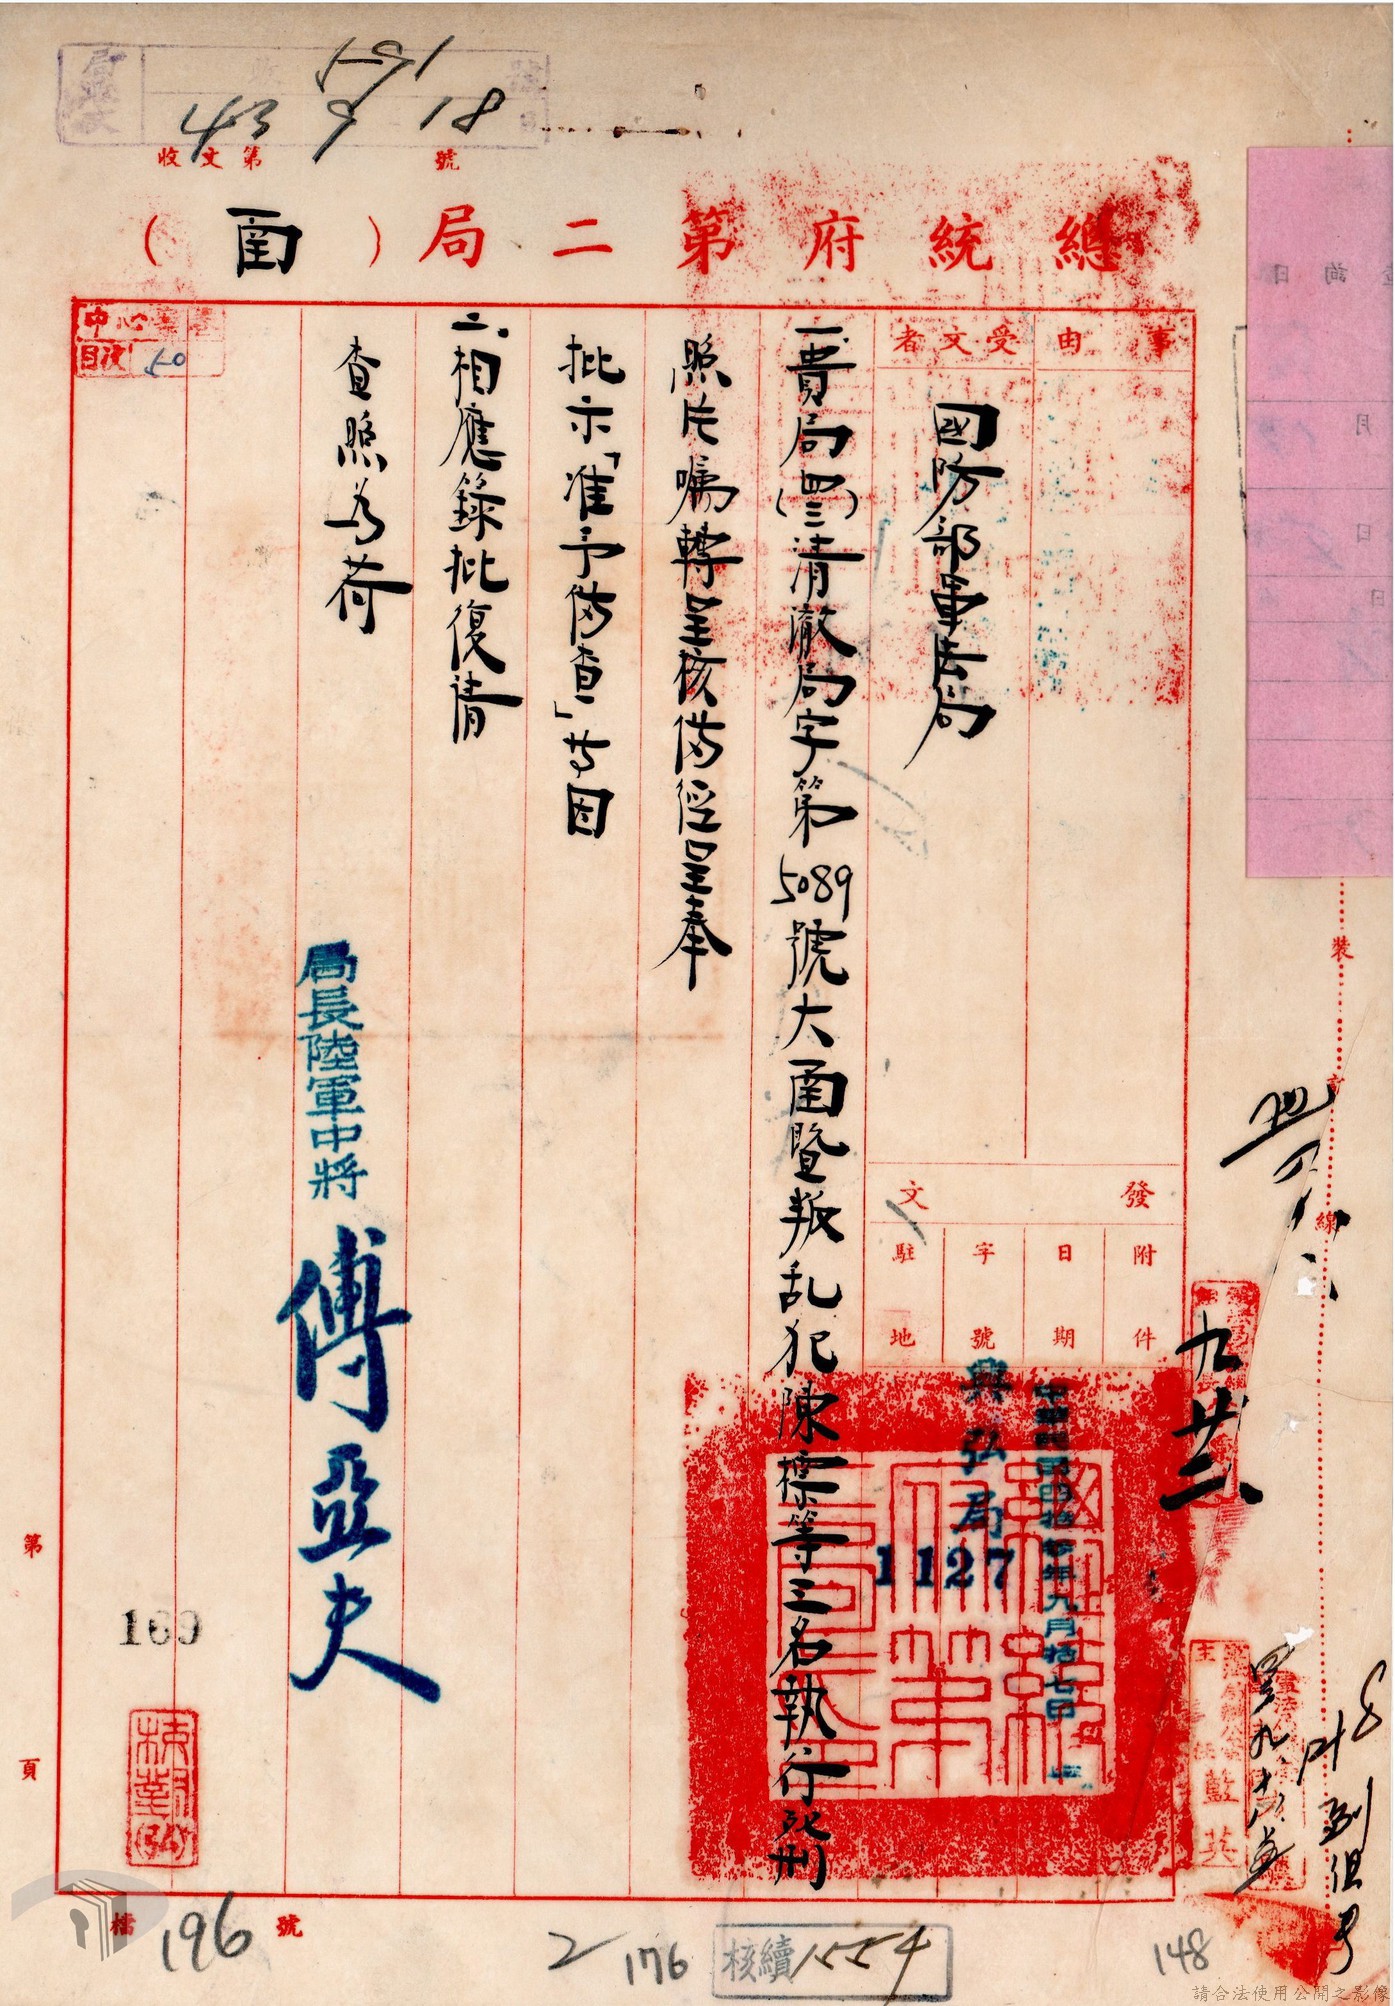 591
43 9 18
收文第 號
總統府第二局（函）
事由
受文者
國防部軍法局
發文
附件
日期
中華民國四拾叁年九月拾七日
字號
興弘局
1127
駐地
一、貴局(四三)清澈局字第5089號大函暨叛乱犯陳標等三名執行死刑
照片囑轉呈核俻經呈奉
批示「准予俻查」等因
二、相應錄批復請
查照為荷
局長陸軍中將
傅亞夫
中心
目次 50
裝
訂
線
九
藍英
第 頁
169
檔 196 號
2
176
核續1554
148
請合法使用公開之影像